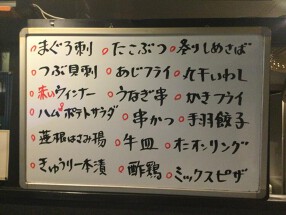 ○まぐろ刺 ○たこぶつ ○炙りしめさば
○つぶ貝刺 ○あじフライ ○丸干いわし
○赤いウィンナー ○うなぎ串 ○かきフライ
○ハムポテトサラダ ○串かつ ○手羽餃子
○蓮根はさみ揚 ○牛皿 ○オニオンリング
○きゅうり一本漬 ○酢鶏 ○ミックスピザ